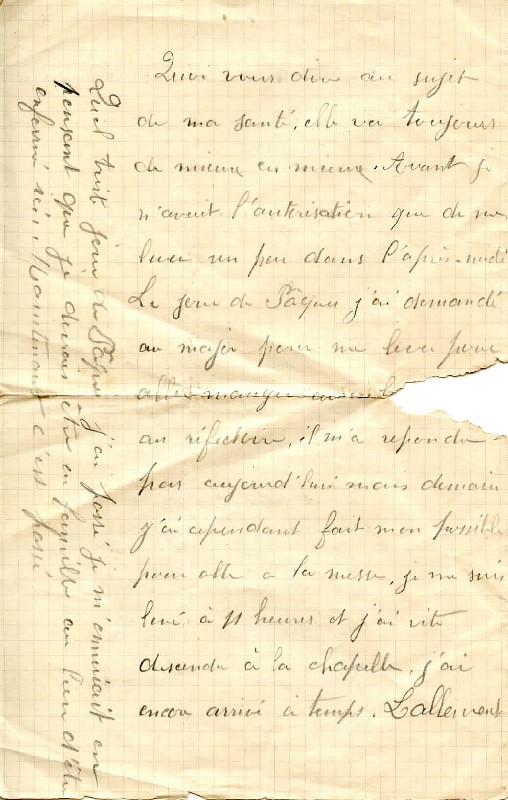 Quoi vous dire au sujet
de ma santé, elle va toujours
de mieux en mieux. Avant je
n'avait l'autorisation que de me
lever un peu dans l'après-midi
Le jour de Pâques j'ai demandé
au major pour me lever pour
aller manger
au réfectoire, il m'a repondu
pas aujourd'hui mais demain
j'ai cependant fait mon possible
pour alle a la messe, je me suis
levé à 11 heures et j'ai vite
descendu à la chapelle, j'ai
encore arrivé à temps. Lallement
Quel triste jour de Pâques j'ai passé je m'ennuiait en
pensant que je devrais être en famille au lieu d'être
enfermé ici. Maintenant c'est passé